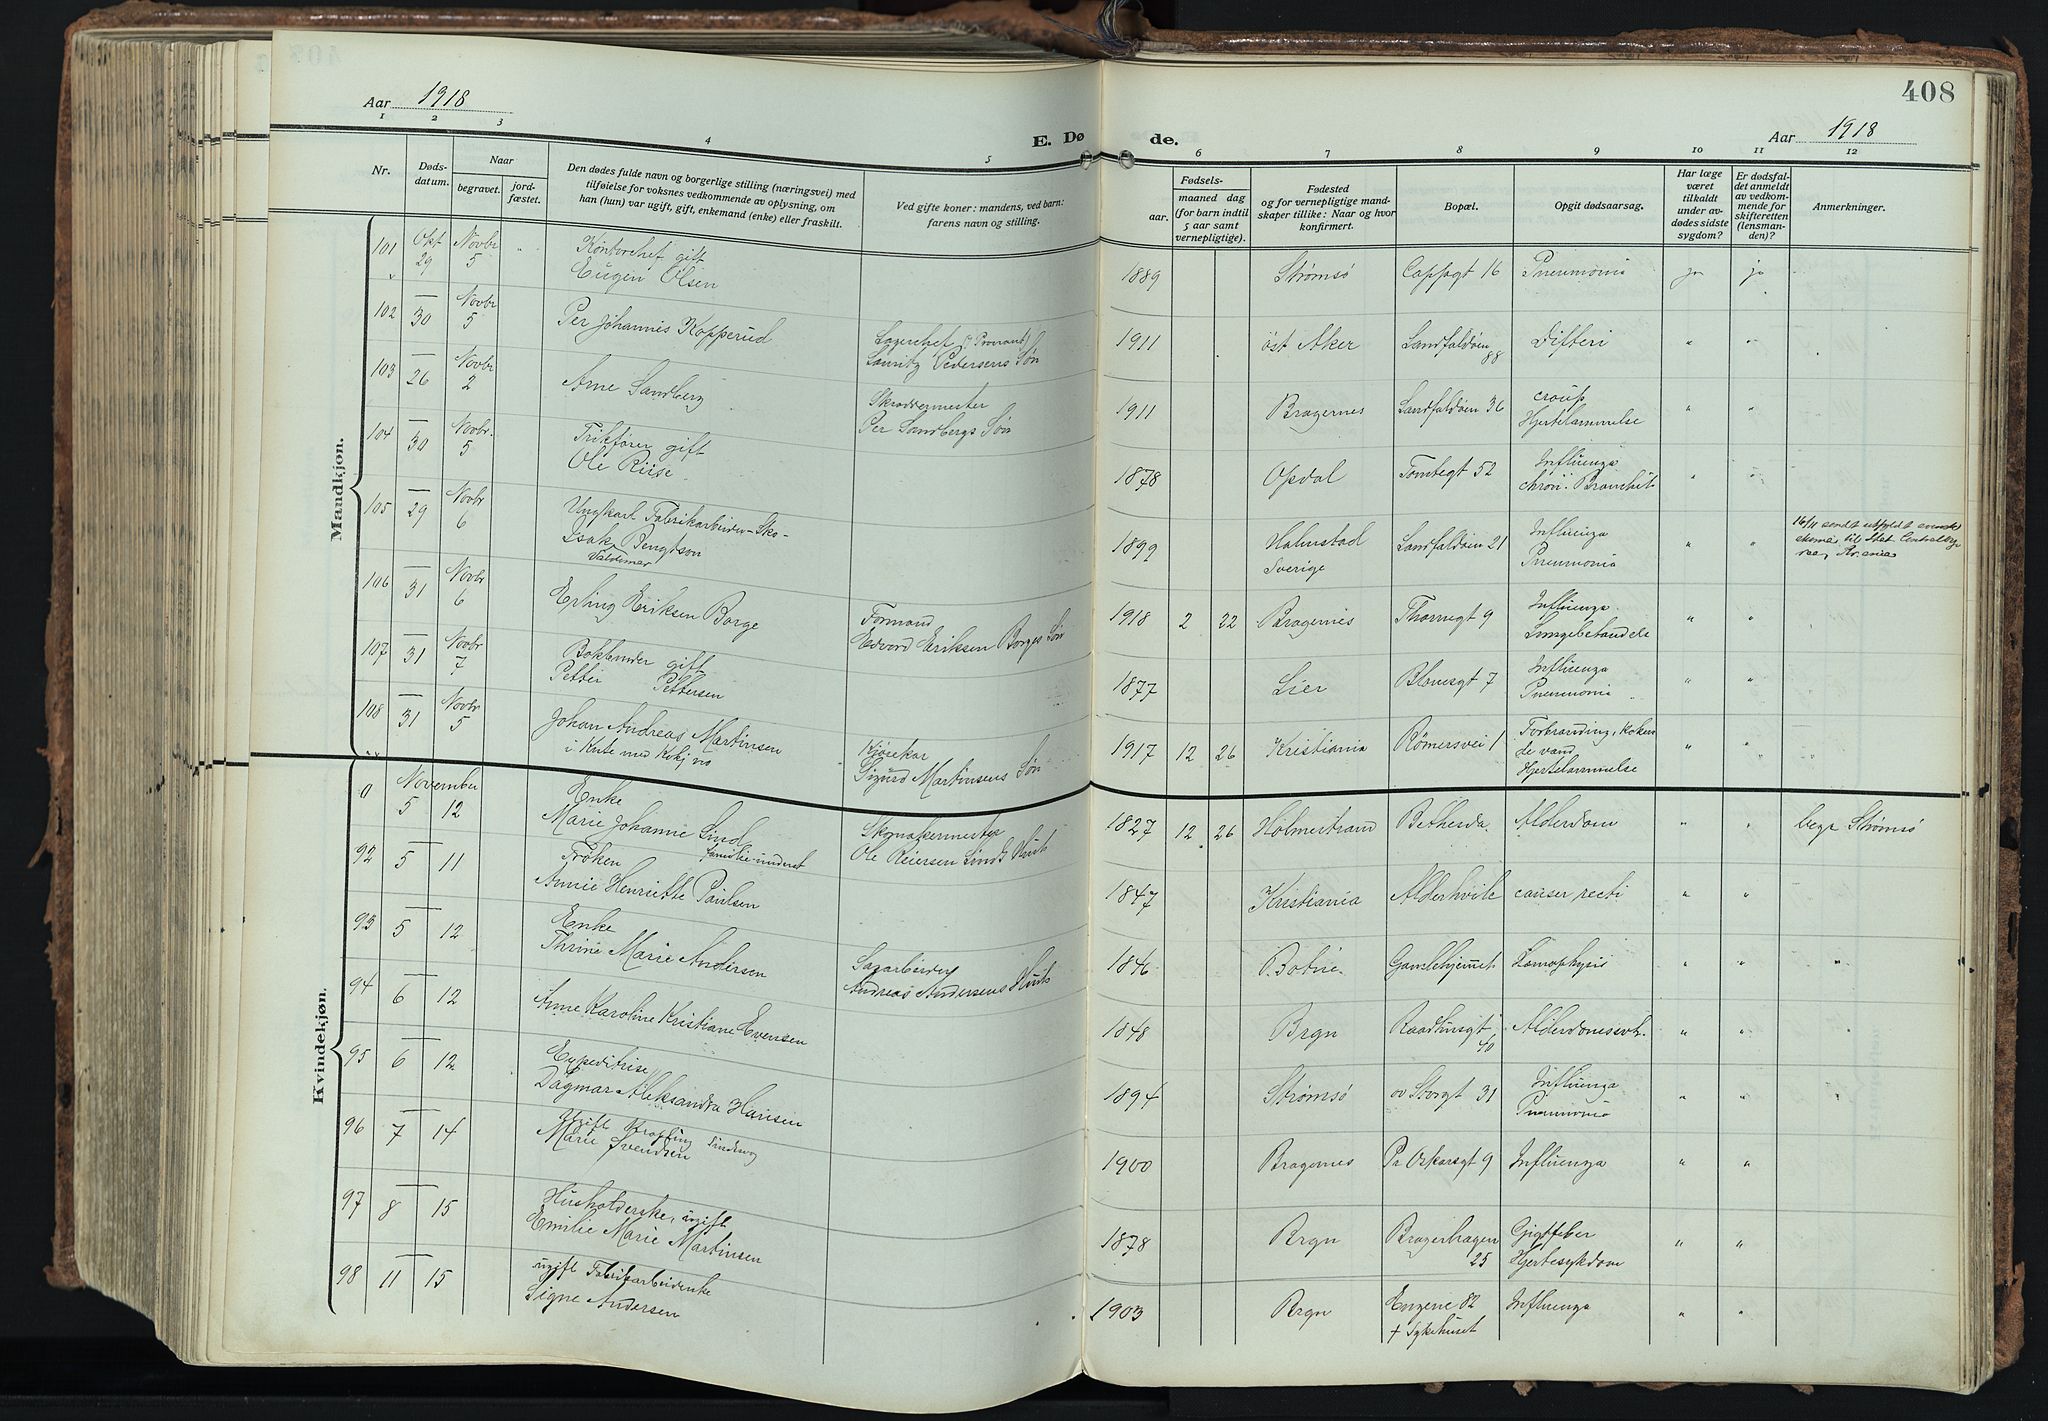 408
Aar 1918
E. Dø de.
Aar 1918
1 2 3 4 5 6 7 8 9 10 11 12
Nr.
Døds-
datum.
Naar
begravet.
jord-
fæstet.
Den dødes fulde navn og borgerlige stilling (næringsvei) med
tilføielse for voksnes vedkommende av oplysning, om
han (hun) var ugift, gift, enkemand (enke) eller fraskilt.
Ved gifte koner: mandens, ved barn:
farens navn og stilling.
Fødsels-
aar. maaned dag
(for barn indtil
5 aar samt
vernepligtige).
Fødested
og for vernepligtige mand-
skaper tillike: Naar og hvor
konfirmert.
Bopæl.
Opgit dødsaarsag.
Har læge
været
tilkaldt
under av-
dødes sidste
sygdom?
Er dødsfal-
det anmeldt
av vedkom-
mende for
skifteretten
(lensman-
den)?
Anmerkninger.
Mandkjøn.
101 Okt 29 Novbr 5 " Kontorchef gift
Eugen Olsen
1889 Strømsø Cappsgt 16 Pneumoni ja ja
102 — 30 Novbr 5 Per Johannes Kopperud
Lagerchef (Proviant)
Lauritz Pedersens Søn
1911 Øst Aker Landfaldøen 88 Difteri " "
103 — 26 Novbr 2 Arne Sandberg
Skreddermester
Per Sandbergs Søn
1911 Bragernes Landfaldøen 36 croup
Hjertelammelse " "
104 — 30 Novbr. 5 gift
Ole Riise
1878 Opdal Tomtegt 52 Influenza
chron. Bronchit " "
105 — 29 Novbr 6 Ungkarl Fabrikarbeider Sko-
Isak Bengtson
Valdemar
1899 Halmstad
Sverige
Landfaldøen 21 Influenza
Pneumonia " "
16/11 sendt utfyldt svensk
til Stat. Central
106 — 31 Novbr 6 Erling Eriksen Borge
Formand
Edvard Eriksen Borges Søn
1918 2 22 Bragernes Thornegt 9 Influenza
Lungebetendelse " "
107 — 31 Novbr 7 Bokbinder gift
Petter Pettersen
1877 Lier Blomsgt 7 Influenza
Pneumonia " "
108 — 31 Novbr 5 Johan Andreas Martinsen
i Kiste med
Kjørekar
Sigurd Martinsens Søn
1917 12 26 Kristiania Rømersvei 1 Forbrænding, Koken
de vand,
Hjertelammelse " "
Kvindekjøn.
0 November 5 12 Enke
Marie Johanne Lind
Skomakermester
Ole Reiersen Linds Enke
1827 12 26 Holmestrand Bethesda Alderdom " " begr Strømsø
92 5 11 Frøken familie underst
Annie Henriette Paulsen
1847 Kristiania Alderhvile cancer recti " "
93 5 12 Enke
Thrine Marie Andersen
Sagarbeider
Andreas Andersens Enke
1846 Botne Gamlehjemmet Hæmophysis " " "
94 6 12 Anne Karoline Kristiane Evensen
1848 Brgn Raadhusgt 40 Alderdomssvk. " "
95 6 12 Expeditrise
Dagmar Aleksandra Hansen
1894 Strømsø ov Storgt 31 Influenza
Pneumonia " "
96 7 14 Ugift
Marie Svendsen
1900 Bragernes Pr Oskarsgt 9 Influenza " "
97 8 15 Husholderske, ugift
Emilie Marie Martinsen
1878 Brgn Bragerhagen 25 Gigtfeber
Hjertesykdom " "
98 11 15 ugift Fabrikarbeiderske
Signe Andersen
1903 Brgn Engene 82
+ Sykehuset
Influenza " "